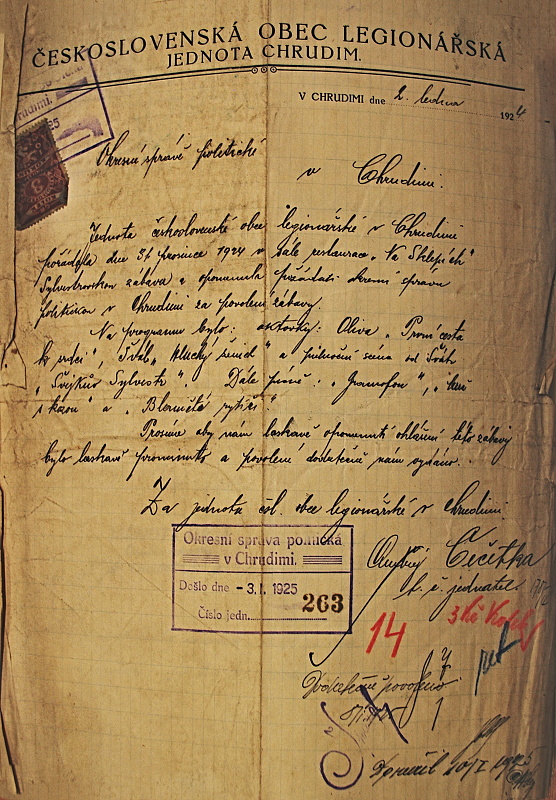 ČESKOSLOVENSKÁ OBEC LEGIONÁŘSKÁ
JEDNOTA CHRUDIM.
V CHRUDIMI dne 2. ledna 1924
Okresní správě politické
v Chrudimi.
Jednota československé obce legionářské v Chrudimi
pořádala dne 31. prosince 1924 v sále restaurace „Na Sklepích"
Sylvestrovskou zábavu a opomenula požádati okresní správu
politickou v Chrudimi za povolení zábavy.
Na programu bylo: aktovky: Oliva „První cesta
k srdci", Šváb „Hluchý ženich" a půlnoční scena od
„Švejkův Sylvestr". Dále písně: „Gramofon",
a „Blaničtí rytíři."
Prosíme aby nám laskavě opomenutí ohlášení této zábavy
bylo laskavě prominuto a povolení dodatečně nám vydáno.
Za jednotu čsl. obce legionářské v Chrudimi
Čečetka
t. č. jednatel
Okresní správa politická
v Chrudimi.
Došlo dne - 3. I. 1925
Číslo jedn. 263
14
3 Kč Kolek
Dodatečně povoleno
Doručil 10/I 1925